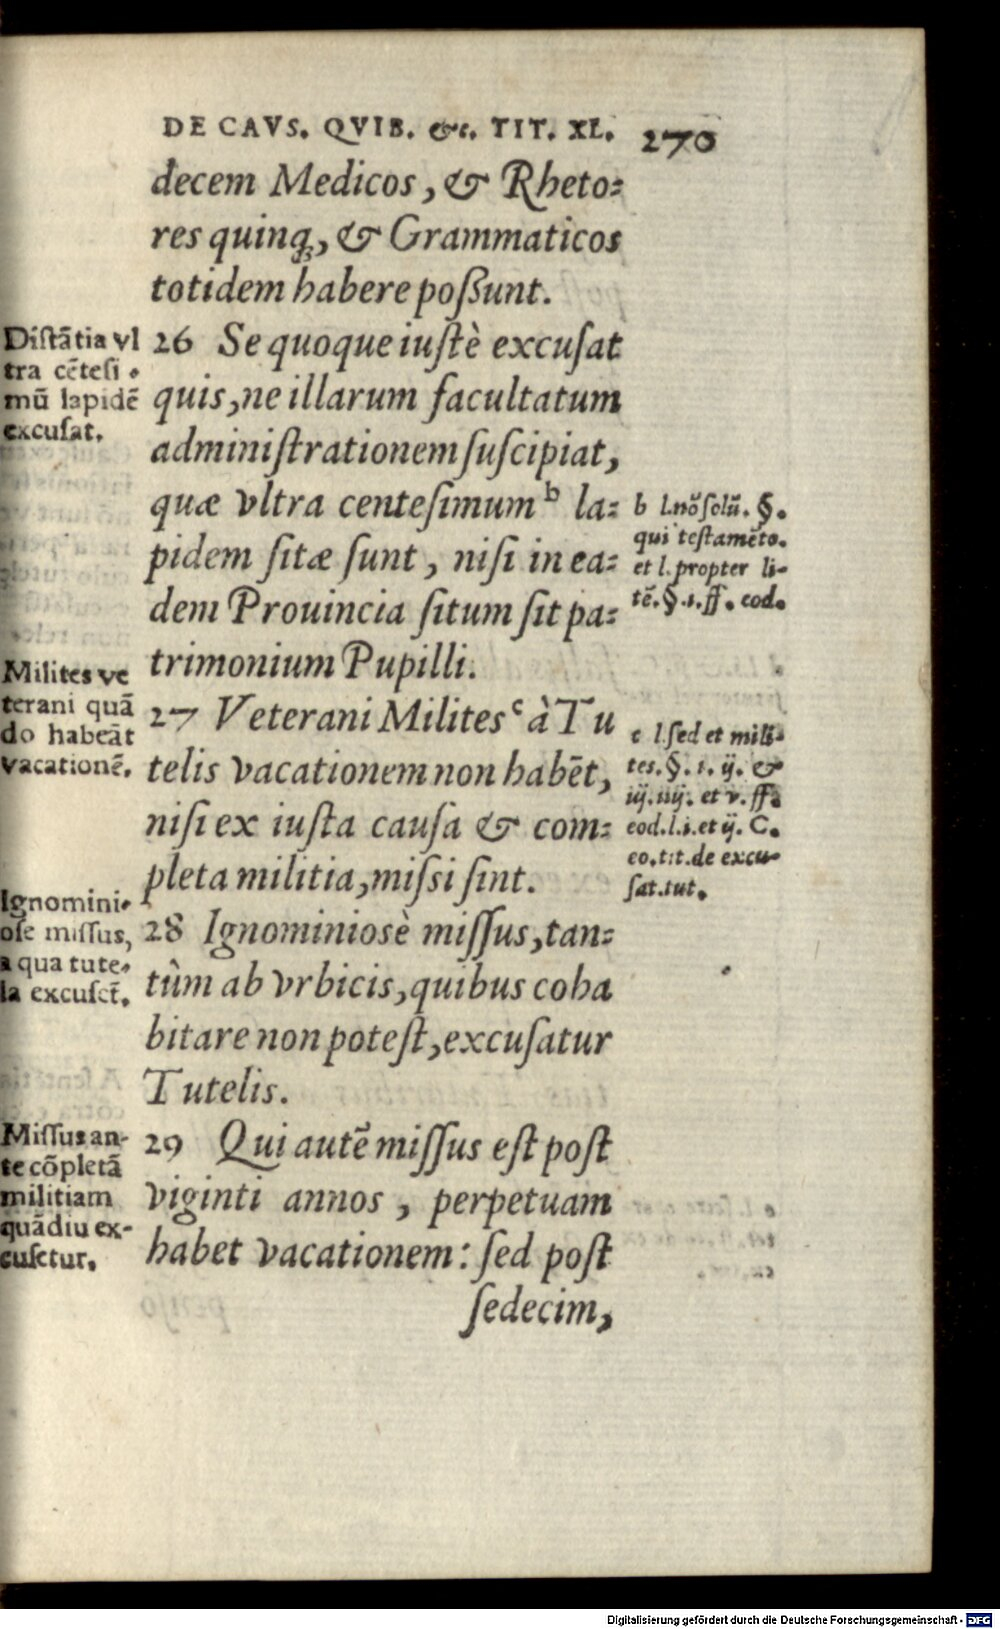 DE CAVS. QVIB. &c. TIT. XL. 270
decem Medicos, & Rheto:
res quinq;, & Grammaticos
totidem habere poßunt.
Distãtia vl
tra cẽtesi
mũ lapidẽ
excusat.
26 Se quoque iustè excusat
quis, ne illarum facultatum
administrationem suscipiat,
quæ vltra centesimum b la:
pidem sitæ sunt, nisi in ea:
dem Prouincia situm sit pa:
trimonium Pupilli.
b l.nõ solũ. §.
qui testamẽto.
et l. propter li-
tẽ. §.1.ff. eod.
Milites ve
terani quã
do habeãt
vacationẽ.
27 Veterani Milites c à Tu
telis vacationem non habẽt,
nisi ex iusta causa & com:
pleta militia, missi sint.
c l.sed et mili-
tes. §. 1. ij. &
iij. iiij. et v. ff.
eod.l.i.et ij. C.
eo.tit.de excu-
sat.tut.
Ignomini-
ose missus,
a qua tute-
la excuset̃.
28 Ignominiosè missus, tan:
tùm ab vrbicis, quibus coha
bitare non potest, excusatur
Tutelis.
Missus an-
te cõpletã
militiam
quãdiu ex-
cusetur.
29 Qui autẽ missus est post
viginti annos, perpetuam
habet vacationem: sed post
sedecim,
Digitalisierung gefördert durch die Deutsche Forschungsgemeinschaft - DFG